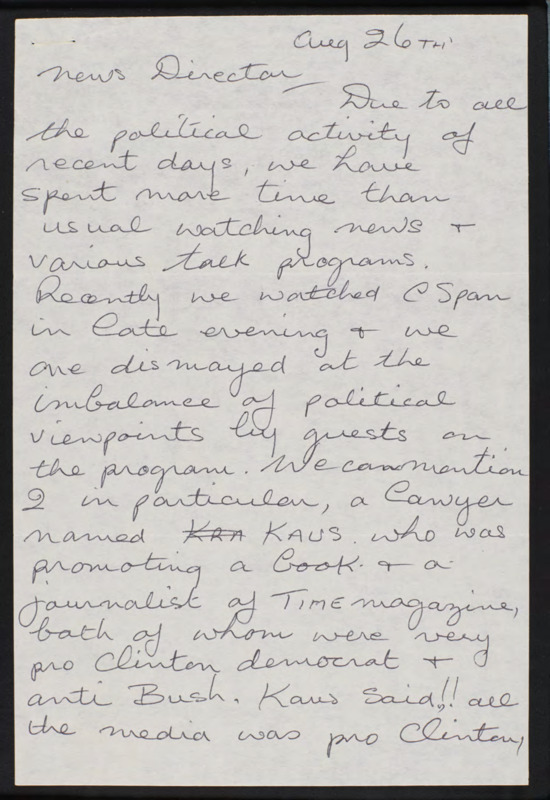 Aug 26TH
News Director
Due to all
the political activity of
recent days, we have
spent more time than
usual watching news +
various talk programs.
Recently we watched C Span
in late evening + we
are dismayed at the
imbalance of political
viewpoints by guests on
the program. We can mention
2 in particular, a lawyer
named KRA KAUS. who was
promoting a book. + a
journalist of TIME magazine,
both of whom were very
pro Clinton democrat +
anti Bush. Kaus said!! all
the media was pro Clinton,